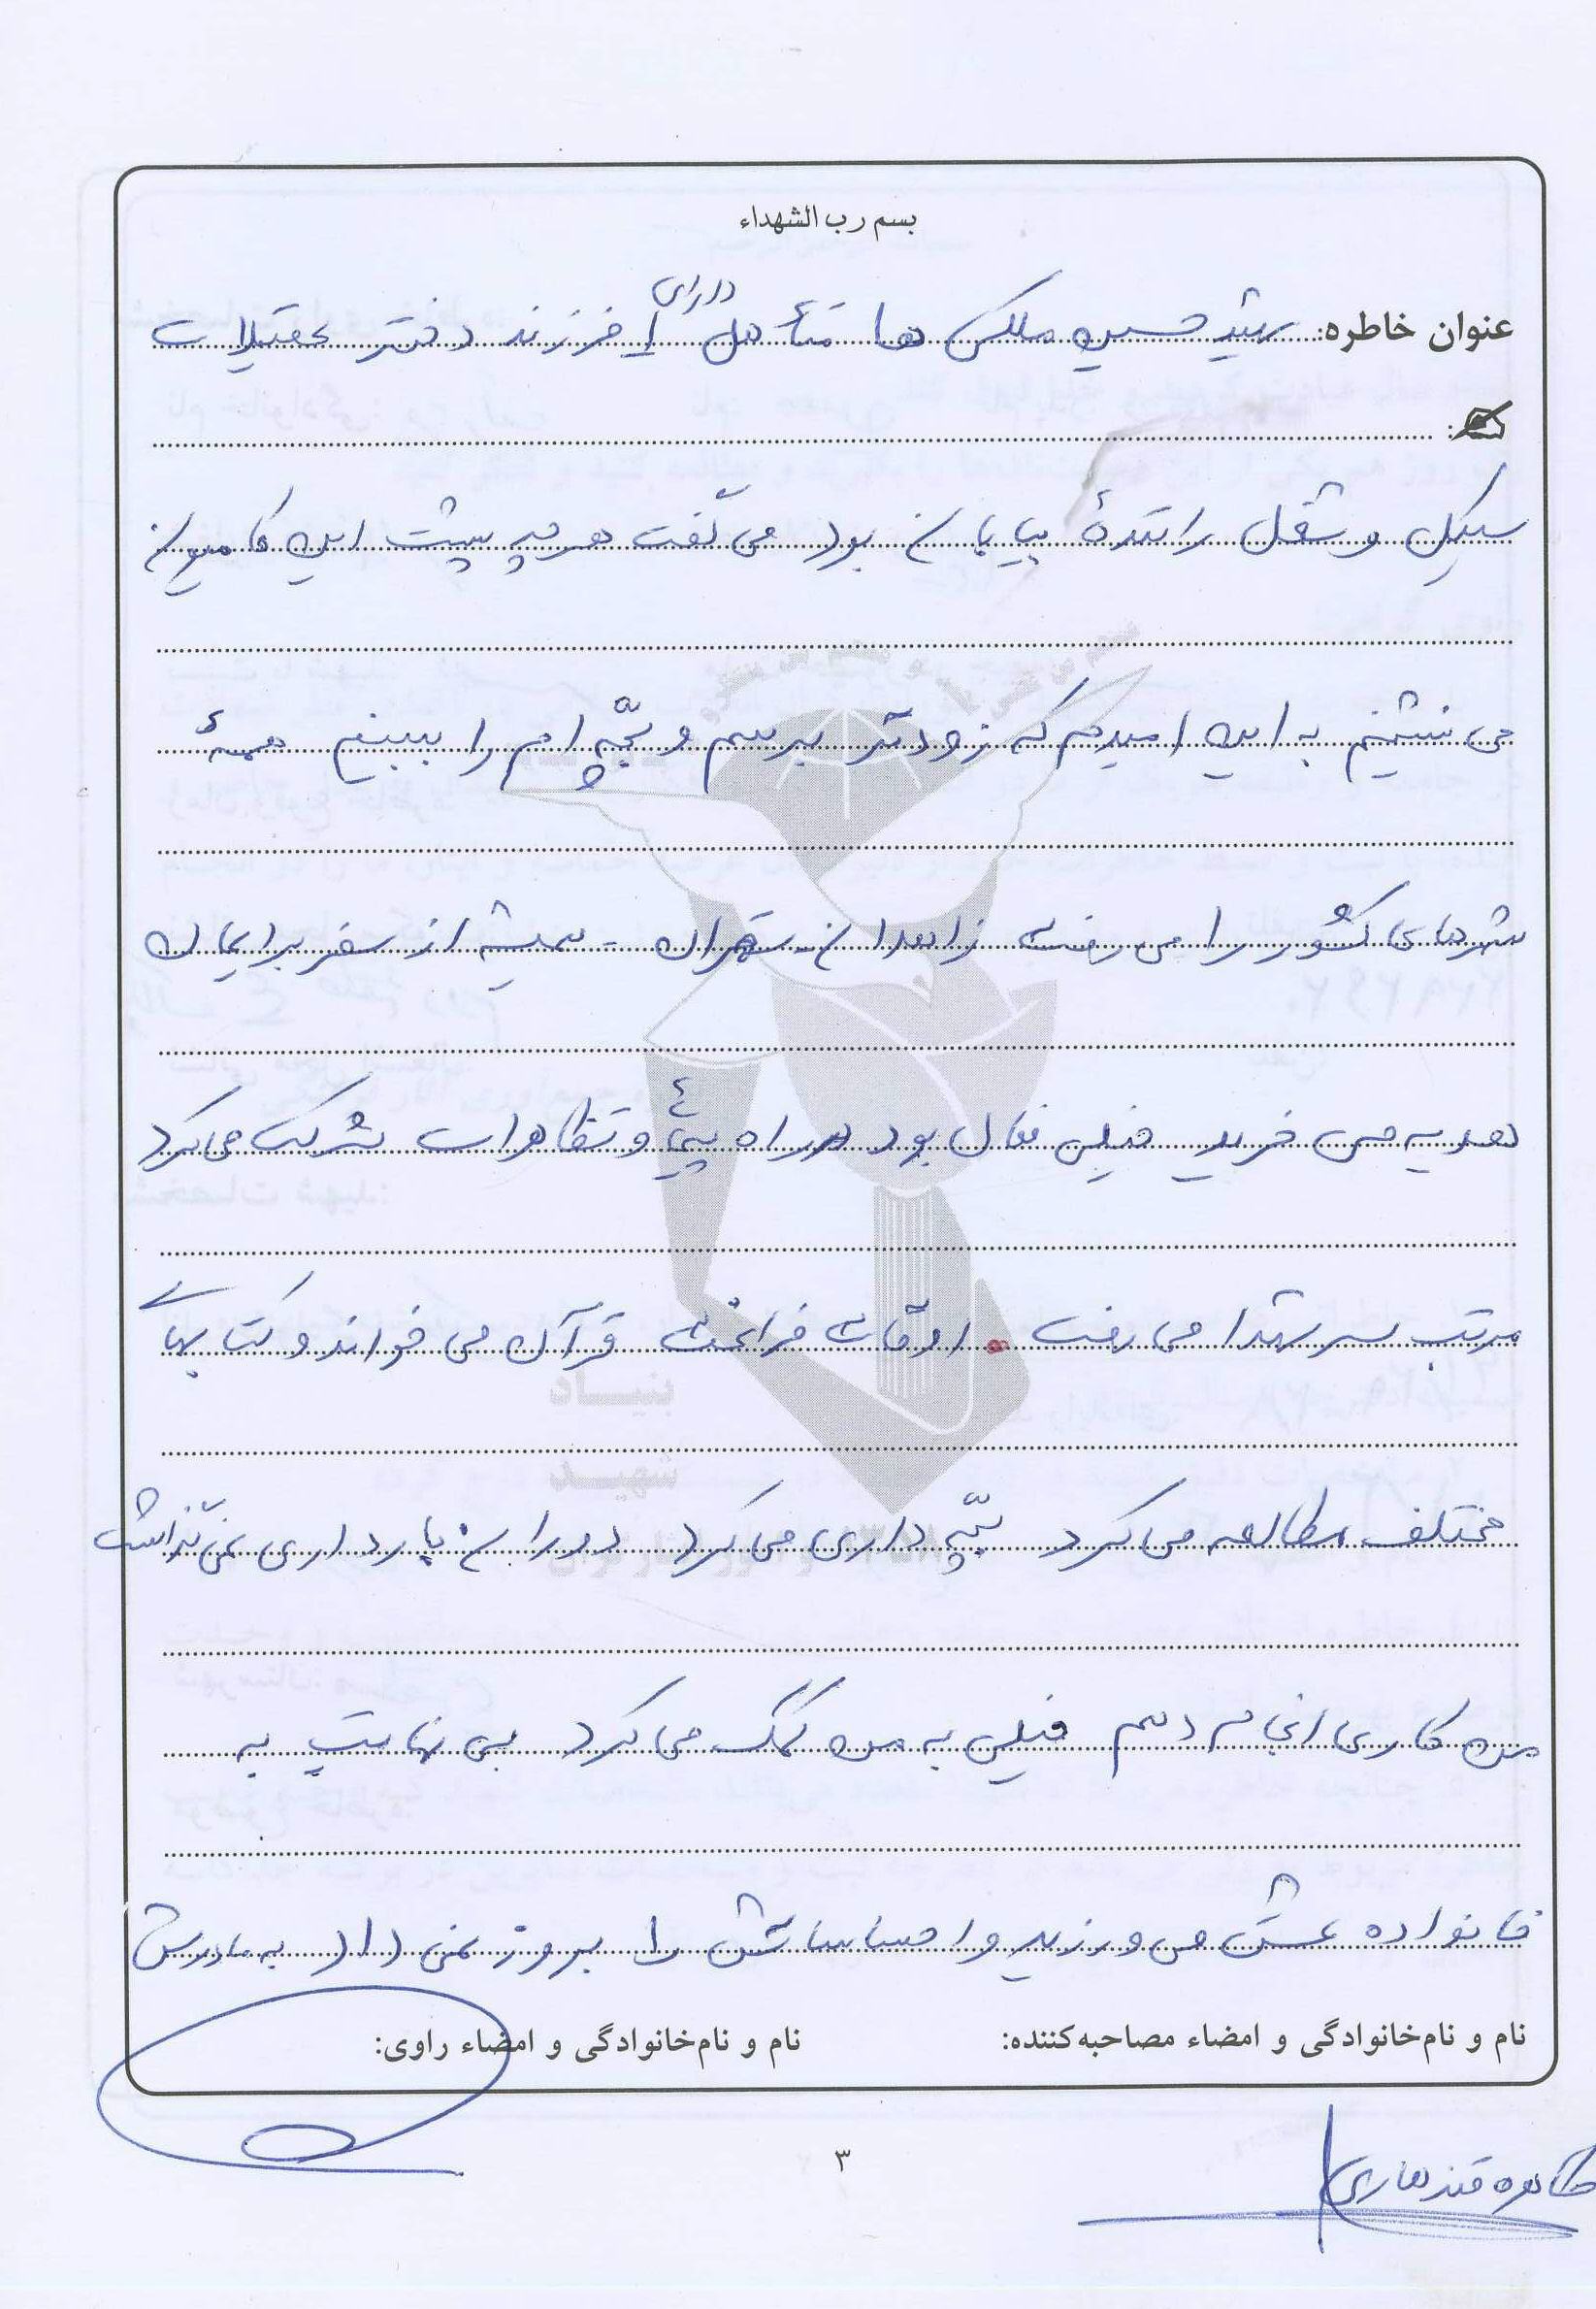 بسم رب الشهداء
عنوان خاطره: شهید حسین ملکی ها متأهل دارای ۱ فرزند دختر تحصیلات
سیکل و شغل رانندهٔ بیابان بود می گفت هر چه پشت این کامیون
می نشینم به این امیدم که زودتر برسم و بچّه ام را ببینم همهٔ
شهرهای کشور را می رفت زاهدان - تهران - همیشه از سفر برایمان
هدیه می خرید خیلی فعال بود در راه پیمائی و تظاهرات شرکت می کرد
مرتب سر شهدا می رفت . اوقات فراغت قرآن می خواند و کتابهای
مختلف مطالعه می کرد بچّه داری می کرد دوران بارداری نمی گذاشت
من کاری انجام دهم خیلی به من کمک می کرد بی نهایت به
خانواده عشق می ورزید و احساساتش را بروز نمی داد به مادرش
نام و نام‌خانوادگی و امضاء مصاحبه‌کننده:
نام و نام‌خانوادگی و امضاء راوی:
طاهره قندهاری
۳
بنیاد
شهید